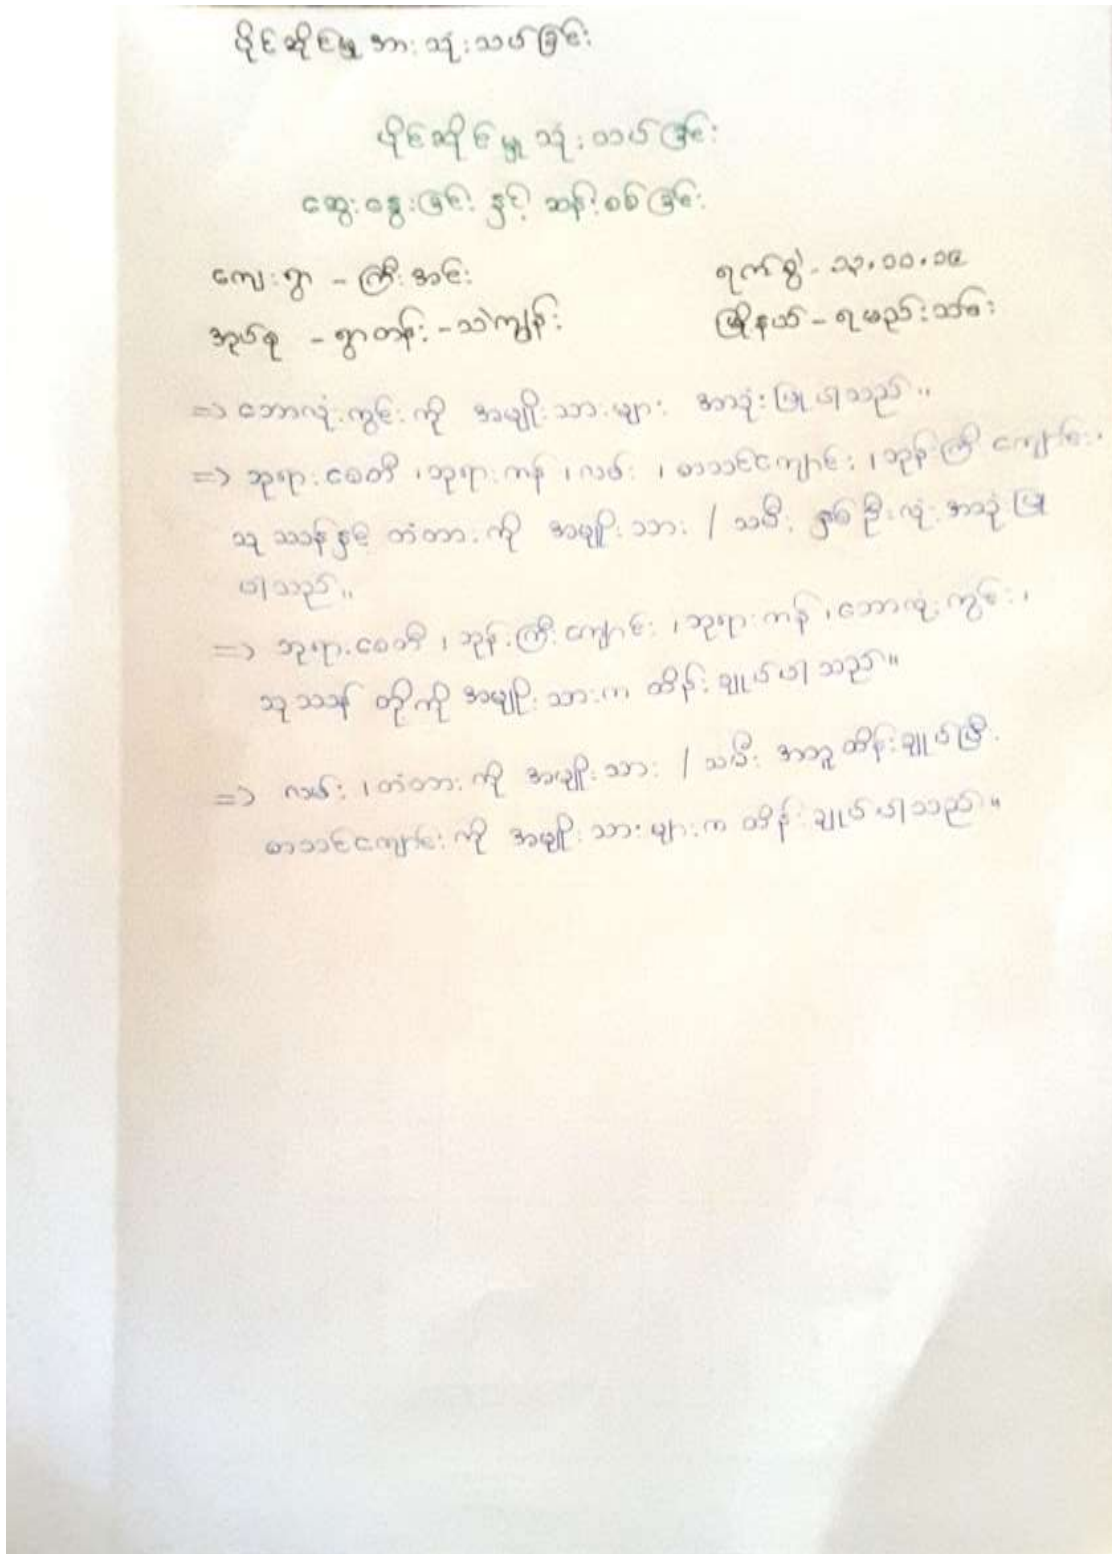 ပိုင်ဆိုင်မှု အား သုံးသပ်ခြင်း
ပိုင်ဆိုင်မှု သုံးသပ်ခြင်း
ဆွေးနွေးခြင်း နှင့် ဆန်းစစ်ခြင်း
ကျေးရွာ - ကြီးအင်း
ရက်စွဲ -
အုပ်စု - ရွာတန်း - သဲကျွန်း
မြို့နယ် - ရမည်းသင်း
=> ဘောလုံးကွင်းကို အမျိုးသားများ အသုံးပြုပါသည်။
=> ဘုရားစေတီ ၊ ဘုရားကန် ၊ လမ်း ၊ စာသင်ကျောင်း ၊ ဘုန်းကြီးကျောင်း ၊
သုသာန်နှင့် တံတားကို အမျိုးသား / သမီး နှစ်ဦးလုံး အသုံးပြု
ပါသည်။
=> ဘုရားစေတီ ၊ ဘုန်းကြီးကျောင်း ၊ ဘုရားကန် ၊ ဘောလုံးကွင်း ၊
သုသာန် တို့ကို အမျိုးသားက ထိန်းချုပ်ပါသည်။
=> လမ်း ၊ တံတားကို အမျိုးသား / သမီး အတူ ထိန်းချုပ်ပြီး
စာသင်ကျောင်းကို အမျိုးသားများက ထိန်းချုပ်ပါသည်။